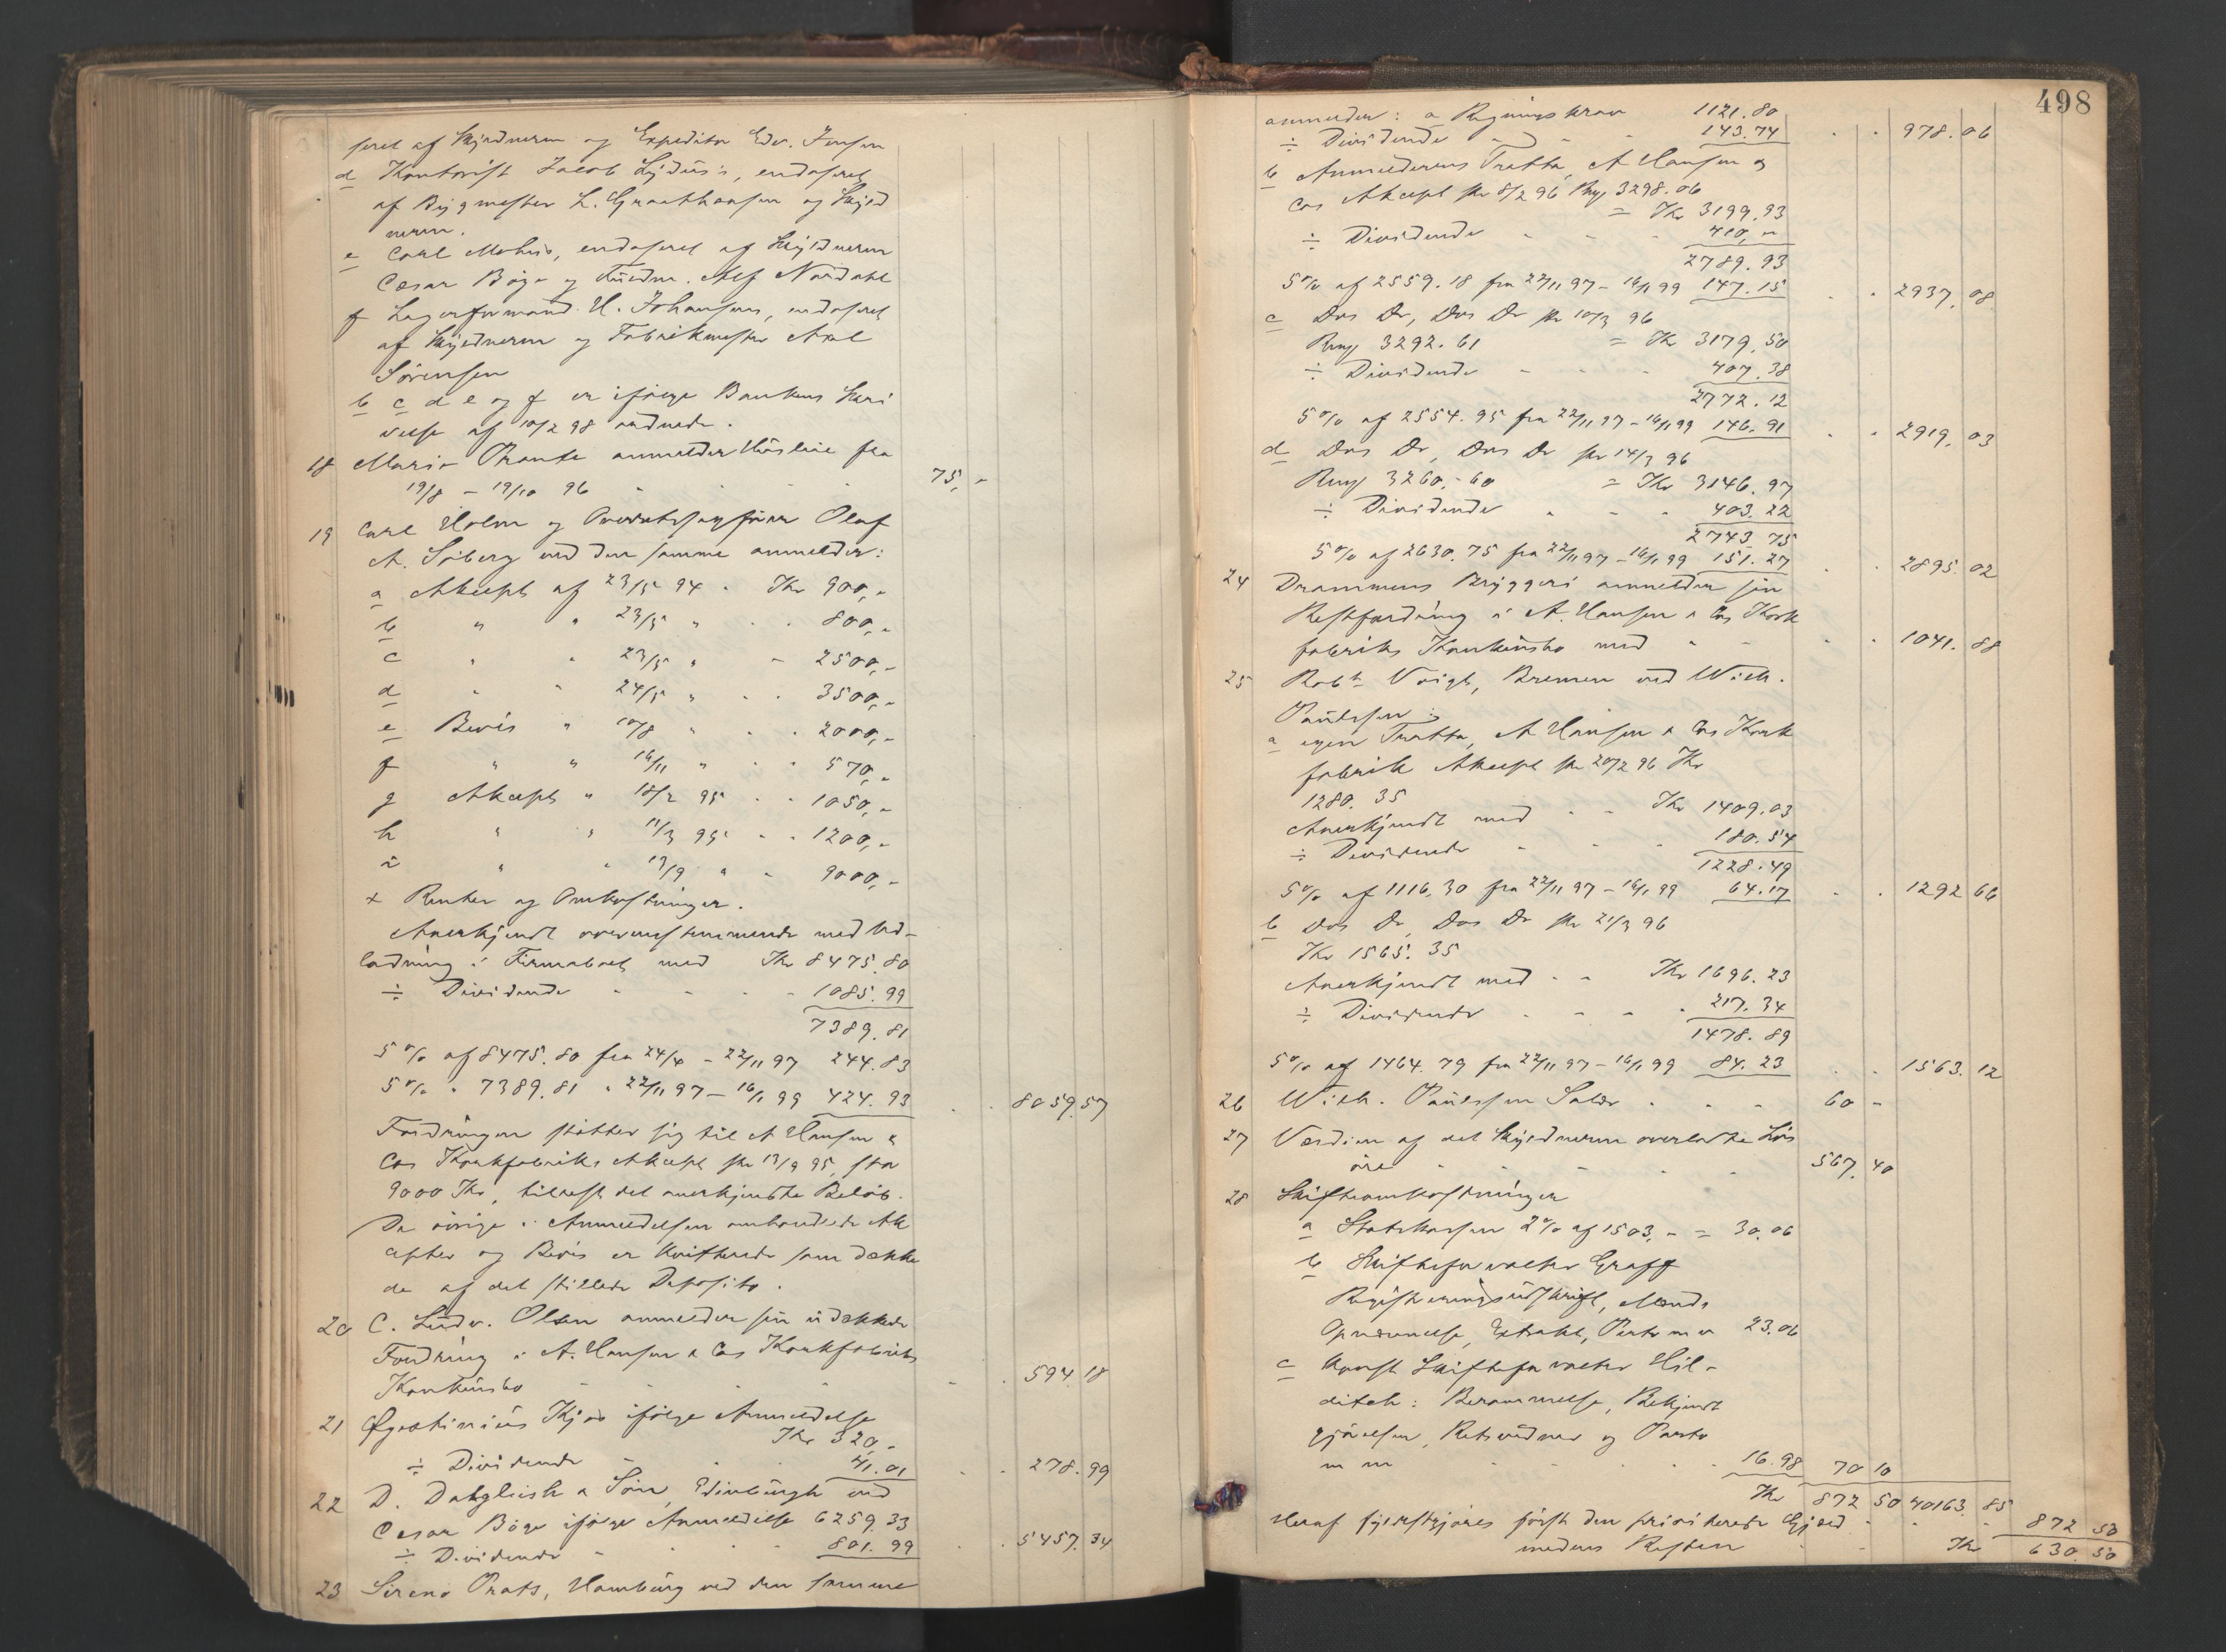 seret af Skyldneren og Expeditør Edv. Jensen
d Kontorist Jacob , endosseret
af Bygmester L. Graathansen og Skyld
neren.
e Carl Mohus, endosseret af Skyldneren
Cæsar Böge og Alf Nordahl
f Lagerformand H. Johansen, endosseret
af Skyldneren og Fabrikmester Axel
Sörensen
b c d e og f er ifölge Bankens Skri
velse af 10/2 98 ordnede.
18 Marie anmelder Husleie fra
19/8 - 19/10 96 75,-
19 Carl Holm og Overretssagförer Olaf
A. Soberg ved den samme anmelder:
a Aksept af 23/5 94 - Kr 900,-
b " " 23/5 " - - 800,-
c " " 23/5 " - 2500,-
d " " 24/5 " - - 3500,-
e Bevis " 10/8 " - - 2000,-
f " " 16/11 " - - 570,-
g Aksept " 18/2 95 - - 1050,-
h " " 11/3 95 - - 1200,-
i " " 13/9 " - 9000,-
+ Renter og Omkostninger.
Anerkjendt overensstemmende med Ud-
lodning i Firmaboet med Kr 8475.80
÷ Dividende - - - 1085.99
7389.81
5 % af 8475.80 fra 24/4 - 22/11 97 244.83
5 % " 7389.81 " 22/11 97 - 16/1 99 424.93 - - 8059.57
Fordringen stötter sig til A Hansen &
Cos Korkfabriks Aksept pr 13/9 95, stor
9000 Kr, tilrest det anerkjendte Belöb.
De övrige i Anmeldelsen omhandlede Ak
septer og Bevis er kvitterede som dække
de af det stillede Deposito.
20 C. Ludv. Olsen anmelder sin udækkede
Fordring i A. Hansen & Cos Korkfabriks
Konkursbo - - - - - 594.18
21 Kjær ifölge Anmeldelse
Kr 320,-
÷ Dividende - - 41.01 - - 278.99
22 D. Dalgleish & Sön, Edinburgh ved
Cæsar Böge ifölge Anmeldelse 6259.33
÷ Dividende - - - 801.99 - - 5457.34
23 Sireno Prats, Hamburg ved den samme
498
anmelder: a Regningskrav 1121.80
÷ Dividende - - - 143.74 - - 978.06
b Anmelderens Tratte, A Hansen &
Cos Aksept pr 8/2 96 3298.06
= Kr 3199.93
÷ Dividende - - - 410,-
2789.93
5 % af 2559.18 fra 22/11 97 - 16/1 99 147.15 - - 2937.08
c Dos Do, Dos Do pr 10/3 96
3292.61 = Kr 3179.50
÷ Dividende - - - 407.38
2772.12
5 % af 2554.95 fra 22/11 97 - 16/1 99 146.91 - - 2919.03
d Dos Do, Dos Do pr 14/3 96
3260.60 = Kr 3146.97
÷ Dividende - - - 403.22
2743.75
5 % af 2630.75 fra 22/11 97 - 16/1 99 151.27 - - 2895.02
24 Drammens Bryggeri anmelder sin
Restfordring i A. Hansen & Cos Kork
fabriks Konkursbo med - - - - 1041.88
25 Robt Voigt, Bremen ved Wilh.
Paulssen:
a egen Tratte, A Hansen & Cos Kork
fabrik Aksept pr 20/2 96 Kr
1280.35
Anerkjendt med - - Kr 1409.03
÷ Dividende - - - 180.54
1228.49
5 % af 1116.30 fra 22/11 97 - 16/1 99 64.17 - - 1292.66
b Dos Do, Dos Do pr 21/3 96
Kr 1565.35
Anerkjendt med - - Kr 1696.23
÷ Dividende - - - - 217.34
1478.89
5 % af 1464.79 fra 22/11 97 - 16/1 99 84.23 - - 1563.12
26 Wilh. Paulssen Salær - - - 60 -
27 Værdien af det Skyldneren overladte Lös
öre - - - - - 567.40
28 Skifteomkostninger
a Statskassen 2 % af 1503,- = 30.06
b Skifteforvalter Graff
Registreringsudskrift, Mænds
Opnævnelse, Extrakt, Porto m v 23.06
c Konst Skifteforvalter Hil-
ditch: Berammelse, Bekjendt
gjörelser, Retsvidner og Porto
m m - - - 16.98 70 10
Kr 872 50 40163.85
Heraf fyldestgjöres först den prioriterede Gjæld - - - 872 50
medens Resten - - Kr 630.50